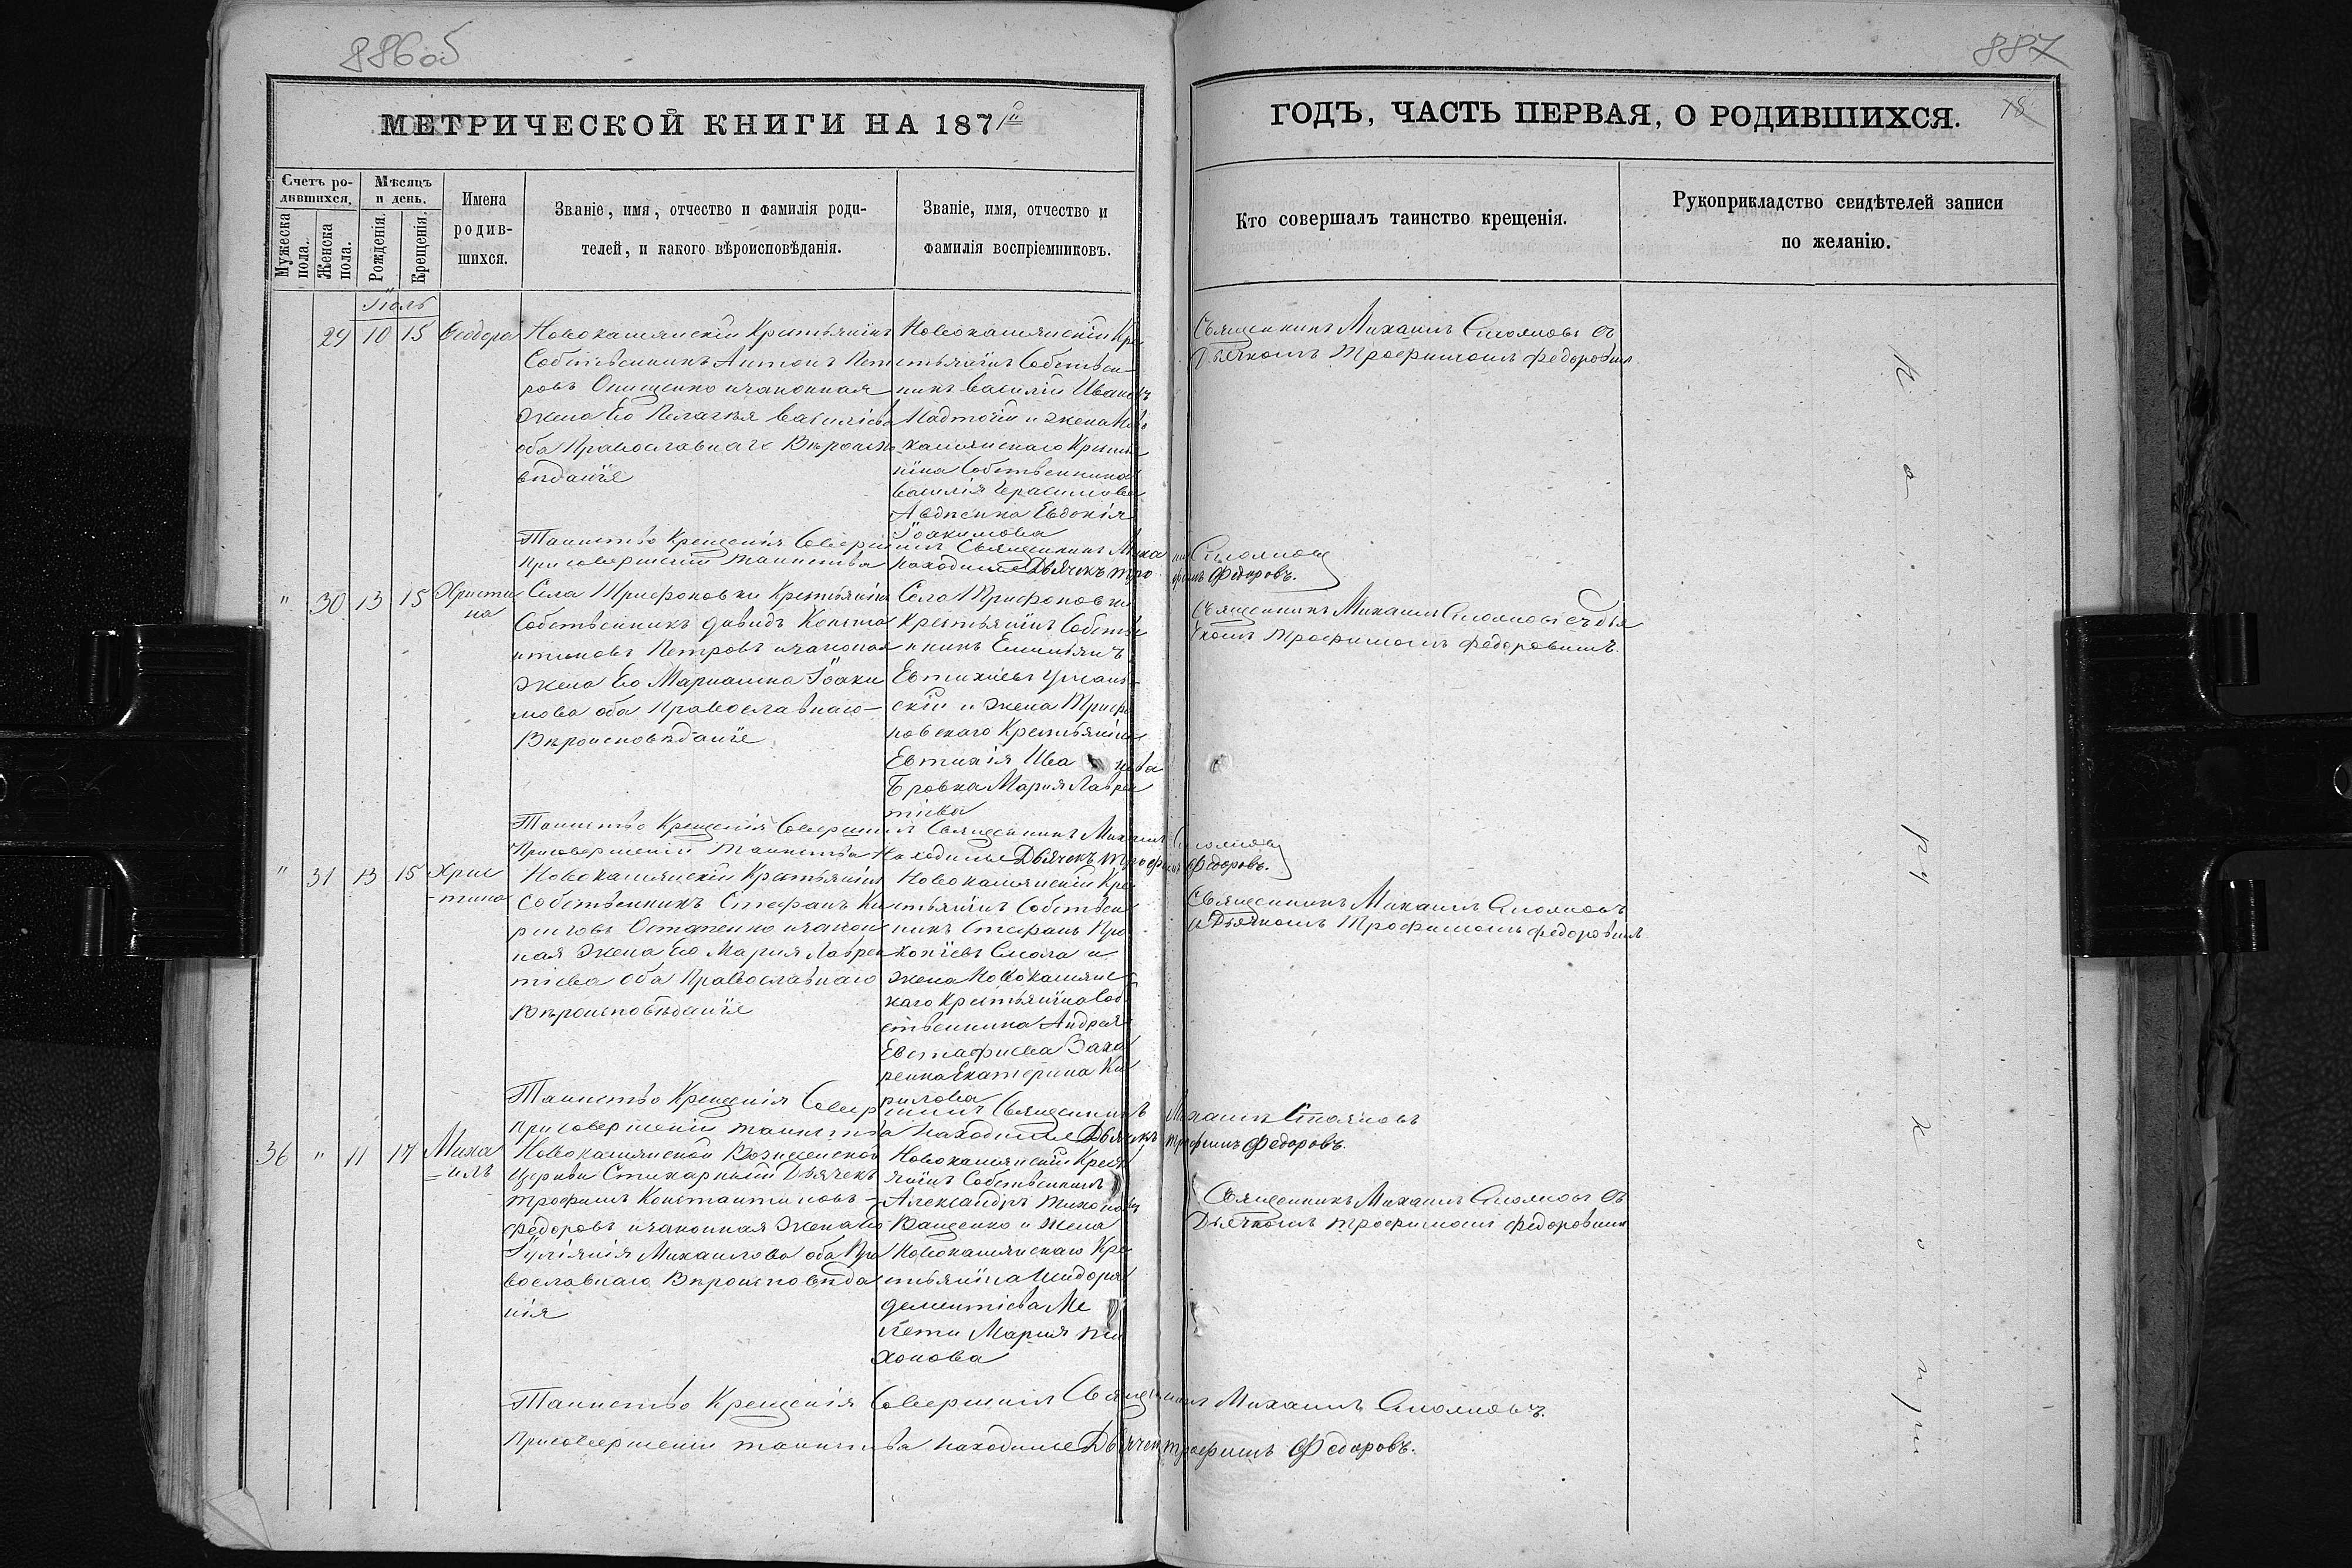 886об
887
МЕТРИЧЕСКОЙ КНИГИ НА 1871й
ГОДЪ, ЧАСТЬ ПЕРВАЯ, О РОДИВШИХСЯ.
78
Счетъ ро-
дившихся.
Мужеска
пола.
Женска
пола.
Мѣсяцъ
и день.
Рожденія.
Крещенія.
Имена
родив-
шихся.
Званіе, имя, отчество и фамилія роди-
телей, и какого вѣроисповѣданія.
Званіе, имя, отчество и
фамилія воспріемниковъ.
Кто совершалъ таинство крещенія.
Рукоприкладство свидѣтелей записи
по желанію.
Іюль
29 10 15 Феодора
Новокаменскій Крестьянинъ
Собственникъ Антонъ Пет
ровъ Онищенко и законная
жена Его Пелагея Василіева
оба Православнаго Вѣроиспо
вѣданіе
Крестьянинъ Собствен-
никъ Василій Ивановъ
Надточій и жена Ново
Крестья
нина Собственника
Василія Герасимова
Авдѣенка Евдокія
Іоакимова
Священникъ Михаилъ Стояновъ съ
Дьячкомъ Трофимомъ Федоровымъ
Таинство Крещенія Совершилъ Священникъ Михаилъ Стояновъ
При совершеніи таинства находился Дьячекъ Трофимъ Федоровъ.
" 30 13 15 Христи
на
Села Трифоновки Крестьянинъ
Собственникъ Давидъ Конста
нтиновъ Петровъ и законная
жена Его Маріамна Іоаки
мова оба Православнаго
Вѣроисповѣданіе
Село Трифоновки
Крестьянинъ Собстве
нникъ Емильянъ
Евтихіевъ Уманъ-
скій и жена Трифо
новскаго Крестьянина
Евтихія Ива нова
Бровка Марія Лаврен
тіева
Священникъ Михаилъ Стояновъ съ Дья
чкомъ Трофимомъ Федоровымъ.
Таинство Крещенія Совершилъ Священникъ Михаилъ Стояновъ
При совершеніи таинства находился Дьячекъ Трофимъ Федоровъ.
" 31 13 15 Хрис
-тина
Крестьянинъ
Собственникъ Стефанъ Ки
риловъ Остапенко и закон
ная жена Его Марія Лаврен
тіева оба Православнаго
Вѣроисповѣданіе
Кре
стьянинъ Собствен
никъ Стефанъ Про
копіевъ Смола и
жена
каго Крестьянина Соб
ственника Андрея
Евстафіева Заха
ренка Екатерина Ки
рилова
Священникъ Михаилъ Стояновъ
съ Дьячкомъ Трофимомъ Федоровымъ
Таинство Крещенія Совершилъ Священникъ Михаилъ Стояновъ
При совершеніи таинства находился Дьячекъ Трофимъ Федоровъ.
36 " 11 17 Миха
-илъ
Церкви Стихарный Дьячекъ
Трофимъ Константиновъ -
Федоровъ и законная жена Его
Іуліянія Михаилова оба Пра
вославнаго Вѣроисповѣда
нія
Крест
янинъ Собственникъ
Александръ Тихоновъ
Ващенко и жена
Кре
стьянина Исидора
Дементіева Ме
Марія Ти
хонова
Священникъ Михаилъ Стояновъ съ
Дьячкомъ Трофимомъ Федоровымъ
Таинство Крещенія Совершилъ Священникъ Михаилъ Стояновъ.
При совершеніи таинства находился Дьячекъ Трофимъ Федоровъ.